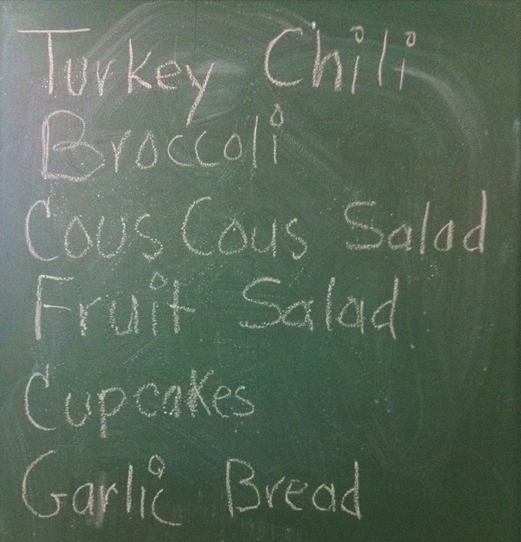 Turkey Chili
Broccoli
Cous Cous Salad
Fruit Salad
Cupcakes
Garlic Bread